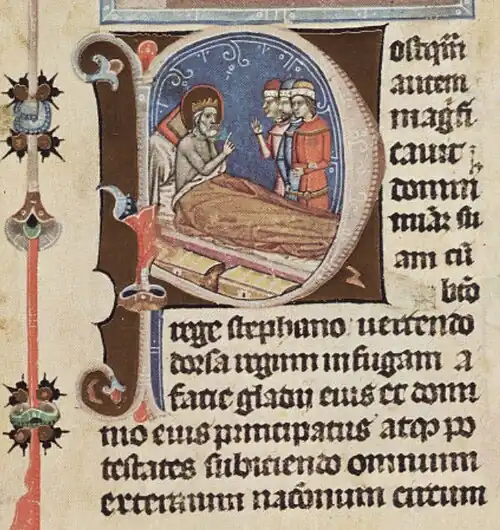 ostq̄m
autem
magi̅fi
cauit
domin
miā2 su
am cū
bt̄o
rege stephano uertendo
dorsa regum in fugam a
facie gladij eius et domi
nio eius principatus atq̄ po
testates subiciendo omnium
exterarum nac̄onum cutum